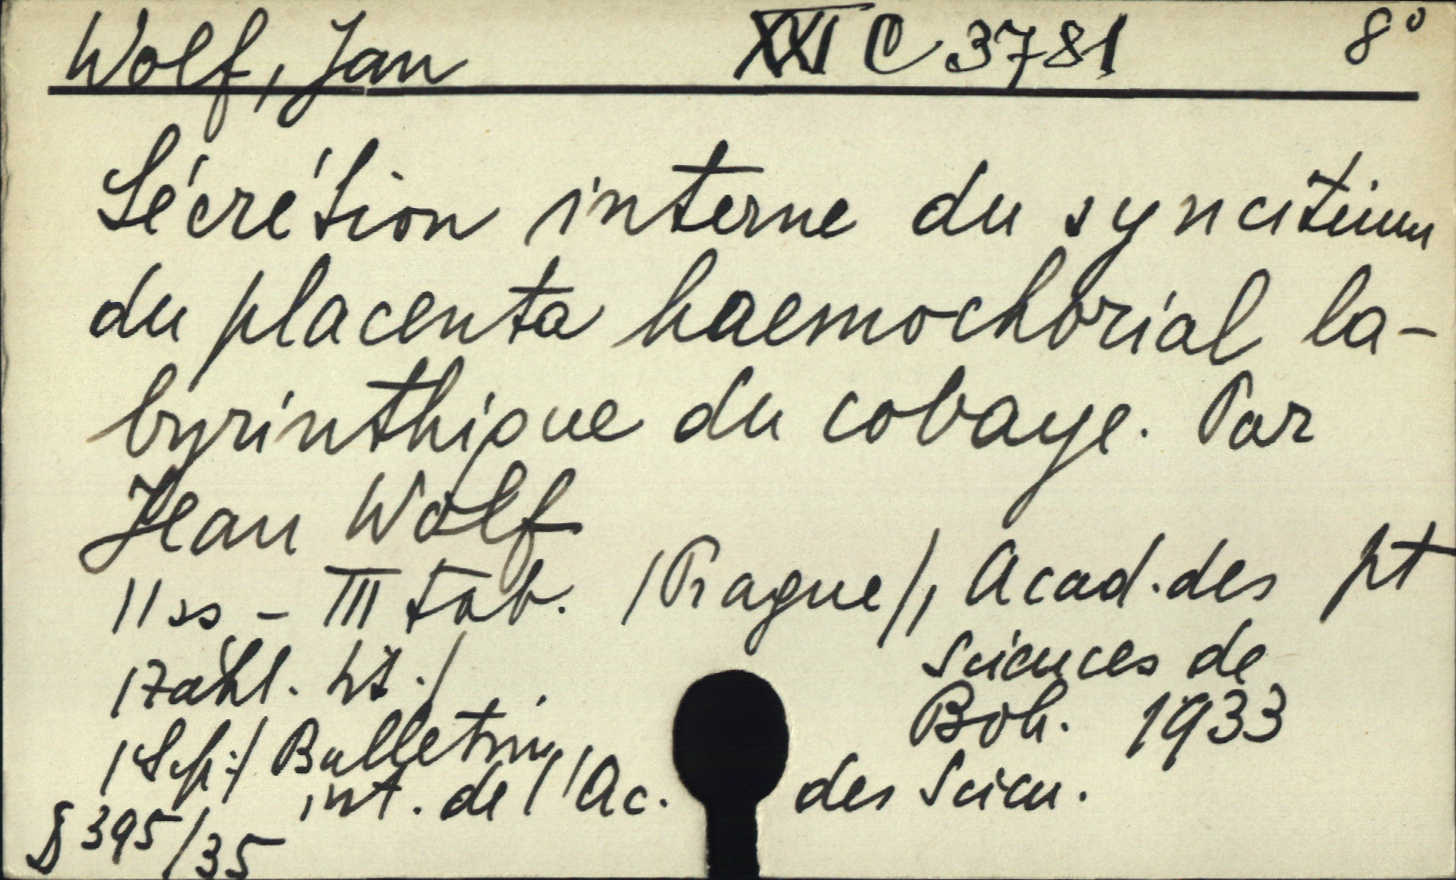 Wolf, Jan XXI C 3781 8°
Sécrétion interne du syncitium
du placenta haemochorial la-
byrinthique du cobaye. Par
Jean Wolf
11 ss - III tab. /Prague/, Acad. des pt
/zähl. ht./ Sciences de
Boh. 1933
/Sep:/ Bulletin
int. de l'Ac. des Scien.
§ 395/35